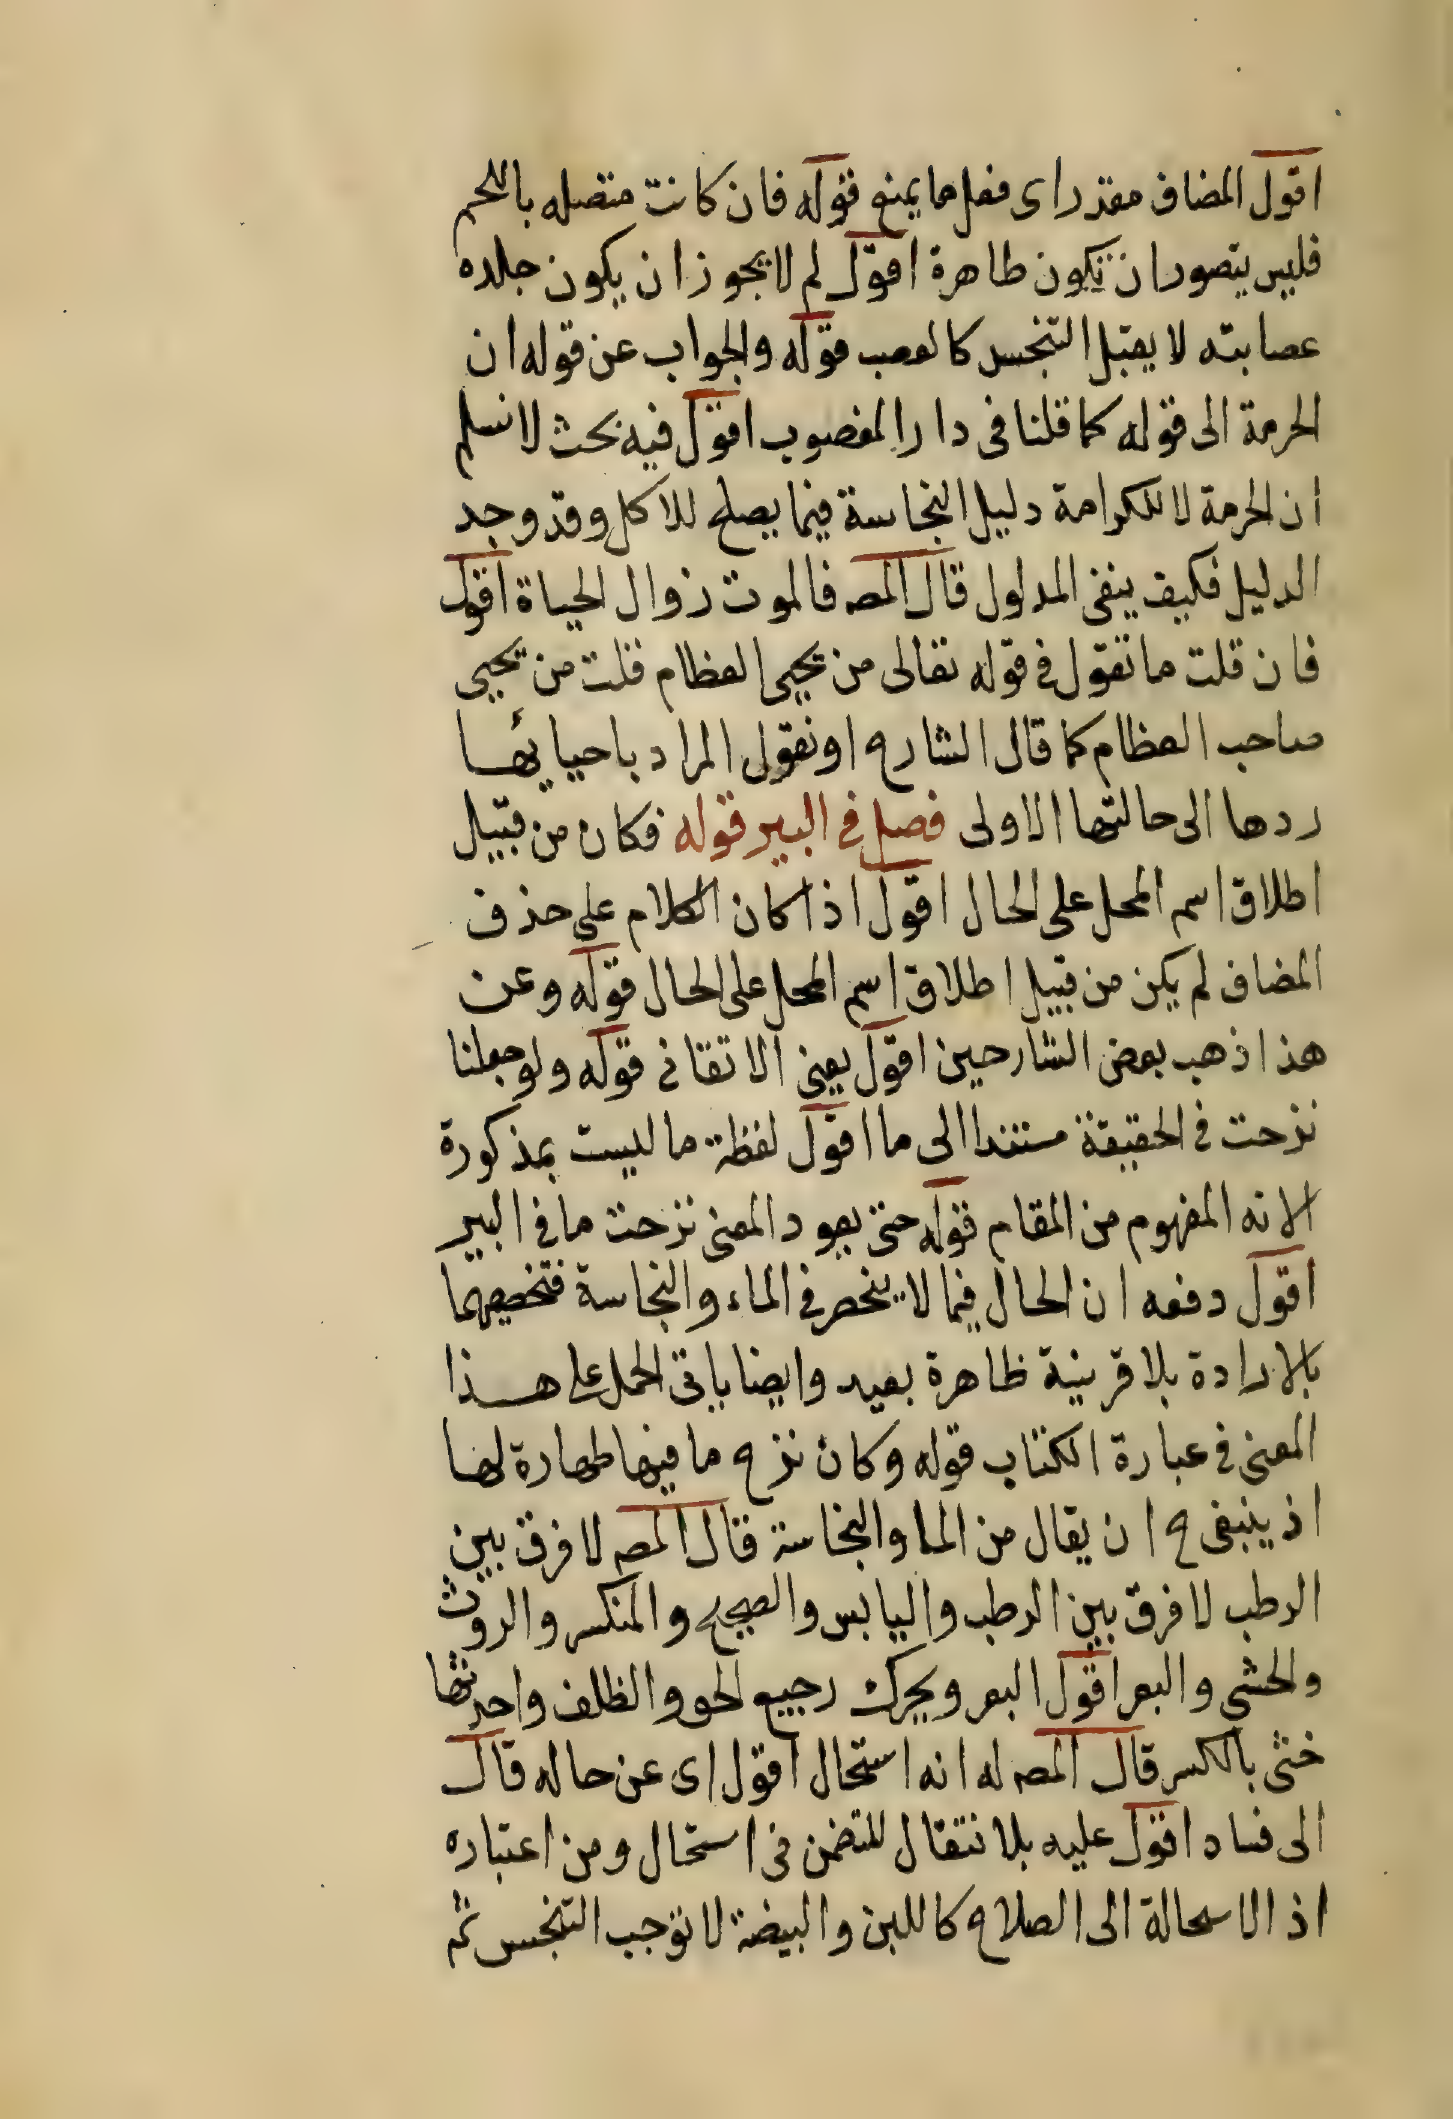 اقول المضاف مقدر اى فعل ما يمنع قوله فان كانت متصله باللحم
فليس يتصور ان تكون طاهرة اقول لم لا يجوز ان يكون جلده
عصابته لا يقبل التنجس كالعصب قوله والجواب عن قوله ان
الحرمة الى قوله كما قلنا فى دار المغصوب اقول فيه بحث لا نسلم
ان الحرمة لا للكرامة دليل النجاسة فيما يصلح للاكل وقد وجد
الدليل فكيف ينفى المدلول قال المصـ فالموت زوال الحياة اقول
فان قلت ما تقول فى قوله تعالى من يحيى العظام قلت من يحيى
صاحب العظام كما قال الشارح او نقول المراد باحيائها
ردها الى حالتها الاولى فصل فى البير قوله فكان من قبيل
اطلاق اسم المحل على الحال اقول اذا كان الكلام على حذف
المضاف لم يكن من قبيل اطلاق اسم المحل على الحال قوله وعن
هذا ذهب بعض الشارحين اقول يعنى الاتقانى قوله ولو جعلنا
نزحت فى الحقيقة مستندا الى ما اقول لفظة ما ليست بمذكورة
الا نه المفهوم من المقام قوله حتى يعود المعنى نزحت ما فى البير
اقول دفعه ان الحال فيما لا ينحصر فى الماء والنجاسة فتخصيصهما
بالارادة بلا قرينة ظاهرة بعيد وايضا ياتى الحمل على هذا
المعنى فى عبارة الكتاب قوله وكان نزح ما فيها طهارة لها
اذ ينبغى ح ان يقال من الما والنجاسة قال المصـ لا فرق بين
الرطب لا فرق بين الرطب واليابس والصحيح والمنكسر والروث
والخثى والبعر اقول البعر ويحرك رجيع الخف والظلف واحدتها
خثى بالكسر قال المصـ له انه استحال اقول اى عن حاله قال
الى فساد اقول عليه بلا نتقال للتضمن فى استحال ومن اعتباره
اذ الاسحالة الى الصلاح كاللبن والبيضة لا توجب التنجس ثم